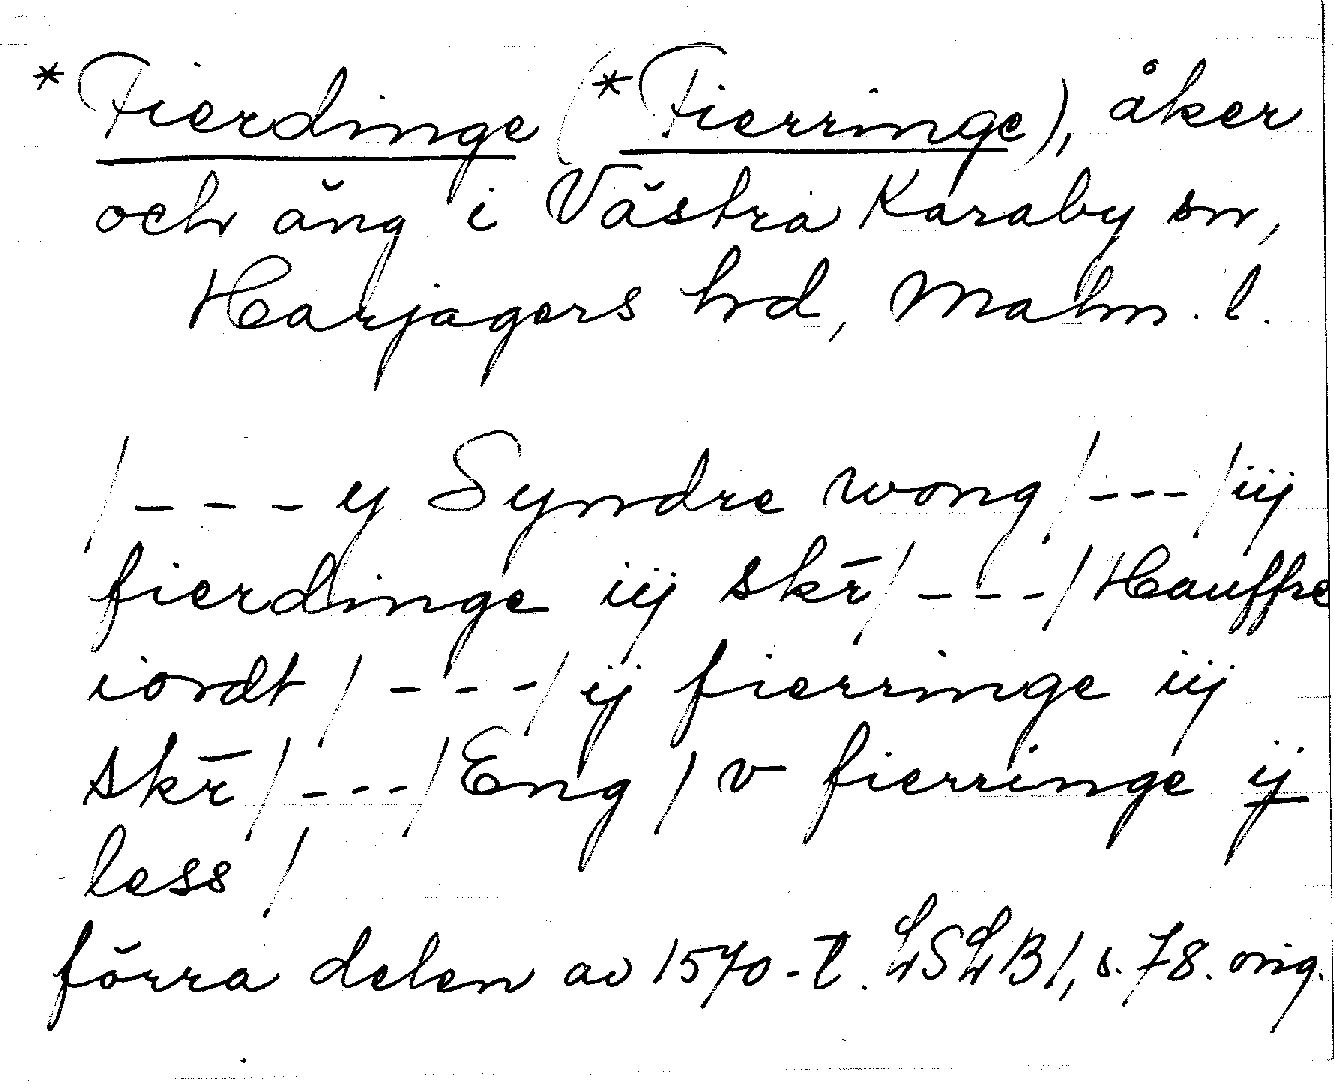 *Fierdinge (*Fierringe), åker
och äng i Västra Karaby sn,
Harjagers hd, Malm. l.
/ - - - y Syndre wong / - - - / iij
fierdinge iij skr̄ / - - - / Hauffre
iordt / - - - / ij fierringe iij
skr̄ / - - - / Eng / v fierringe ij
less /
förra delen av 1570-t. LSLB 1, s. 78. orig.